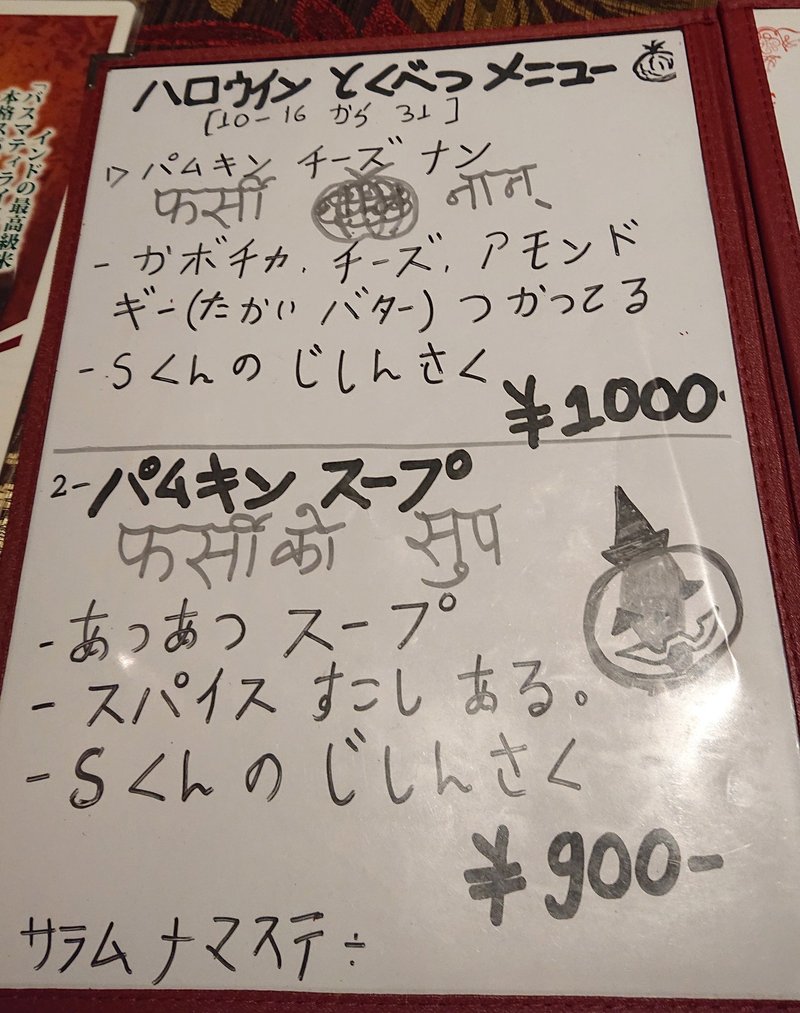 ハロウィン とくべつ メニュー
[10-16 から 31]
1> パムキン チーズ ナン
फर्सी नान
- カボチカ, チーズ, アモンド
ギー(たかい バター) つかってる
- Sくんの じしんさく
¥1000-
2- パムキン スープ
फर्सीको सुप
- あつあつ スープ
- スパイス すこし ある。
- Sくんの じしんさく
¥900-
サラム ナマステ ÷
インドの最高級米
「バスマティライ
本格スパ